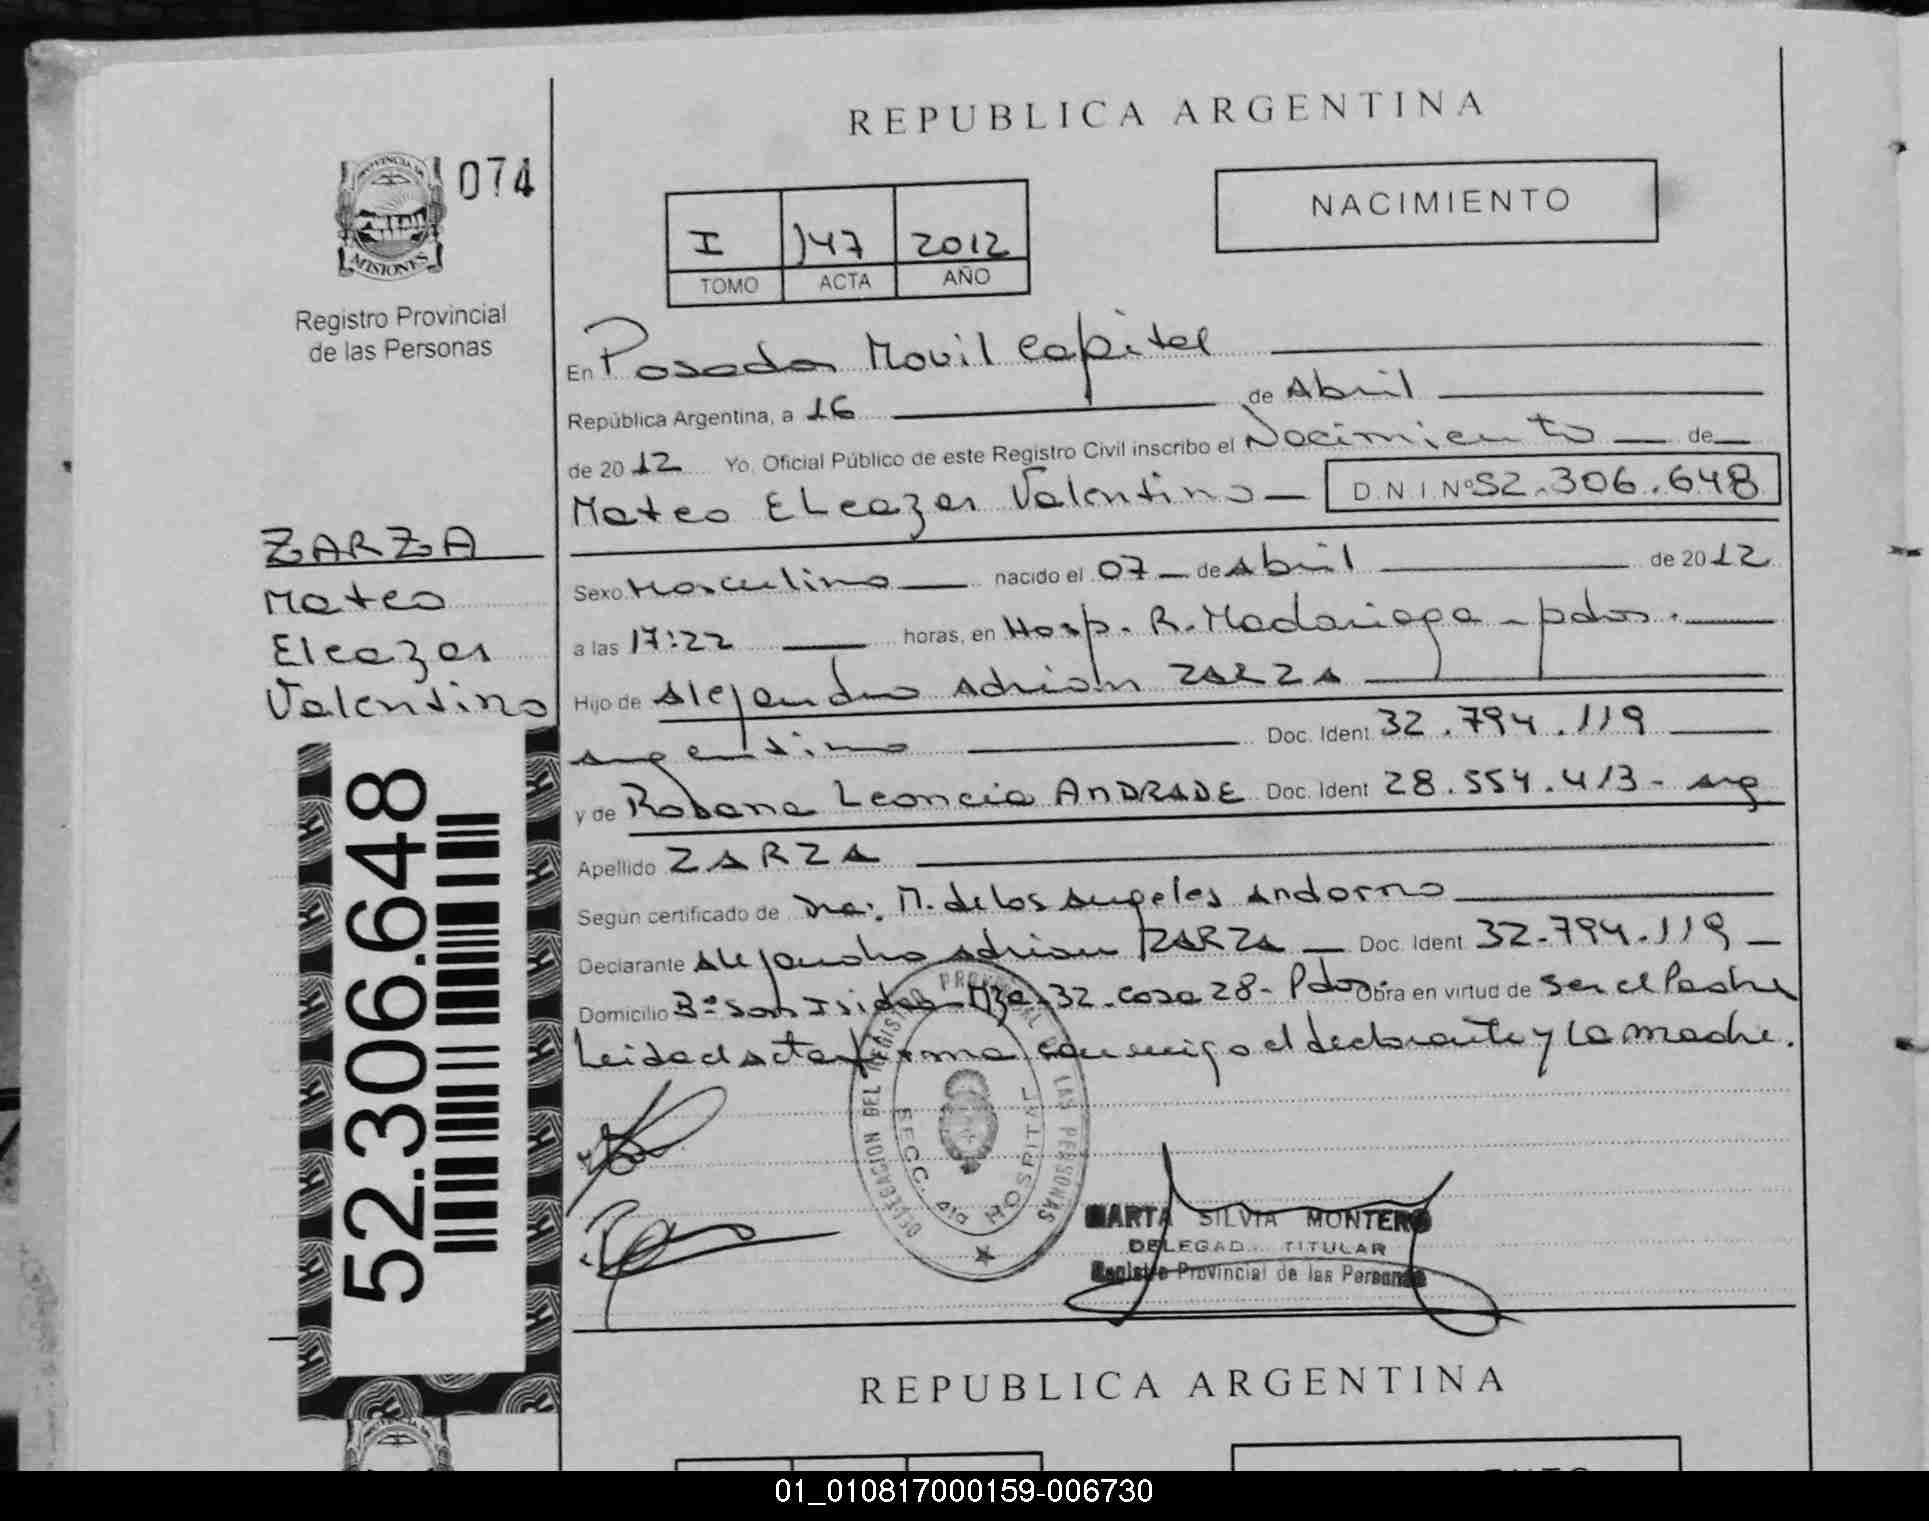 REPUBLICA ARGENTINA
PROVINCIA DE
MISIONES
074
Registro Provincial
de las Personas
I 147 2012
TOMO ACTA AÑO
NACIMIENTO
En Posadas Movil Capital
República Argentina, a 16 de Abril
de 2012 Yo, Oficial Público de este Registro Civil inscribo el Nacimiento de
Mateo Eleazar Valentino D.N.I.Nº 52.306.648
ZARZA
Mateo
Eleazar
Valentino
52.306.648
Sexo Masculino nacido el 07 de Abril de 2012
a las 17:22 horas, en Hosp. R. Madariaga - pdas.
Hijo de Alejandro Adrian ZARZA
Argentino Doc. Ident 32.794.119
y de Rosana Leoncia ANDRADE Doc. Ident 28.554.413 - arg
Apellido ZARZA
Según certificado de Dra: M. de los Angeles Andorno
Declarante Alejandro Adrian ZARZA Doc. Ident 32.794.119
Domicilio Bº San Isidro Mza. 32. casa 28 - Pdas. Obra en virtud de Ser el Padre
Leida el acta firma conmigo el declarante y la madre.
DELEGACION DEL REGISTRO PROVINCIAL LAS PERSONAS
SECC. 4ta HOSPITAL
MARTA SILVIA MONTERO
DELEGADA TITULAR
Registro Provincial de las Personas
REPUBLICA ARGENTINA
01_010817000159-006730